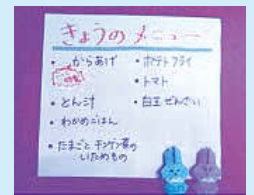 きょうのメニュー
・からあげ
・とん汁
・わかめごはん
・たまごとチンゲン菜の
いためもの
・ポテトフライ
・トマト
・白玉ぜんざい